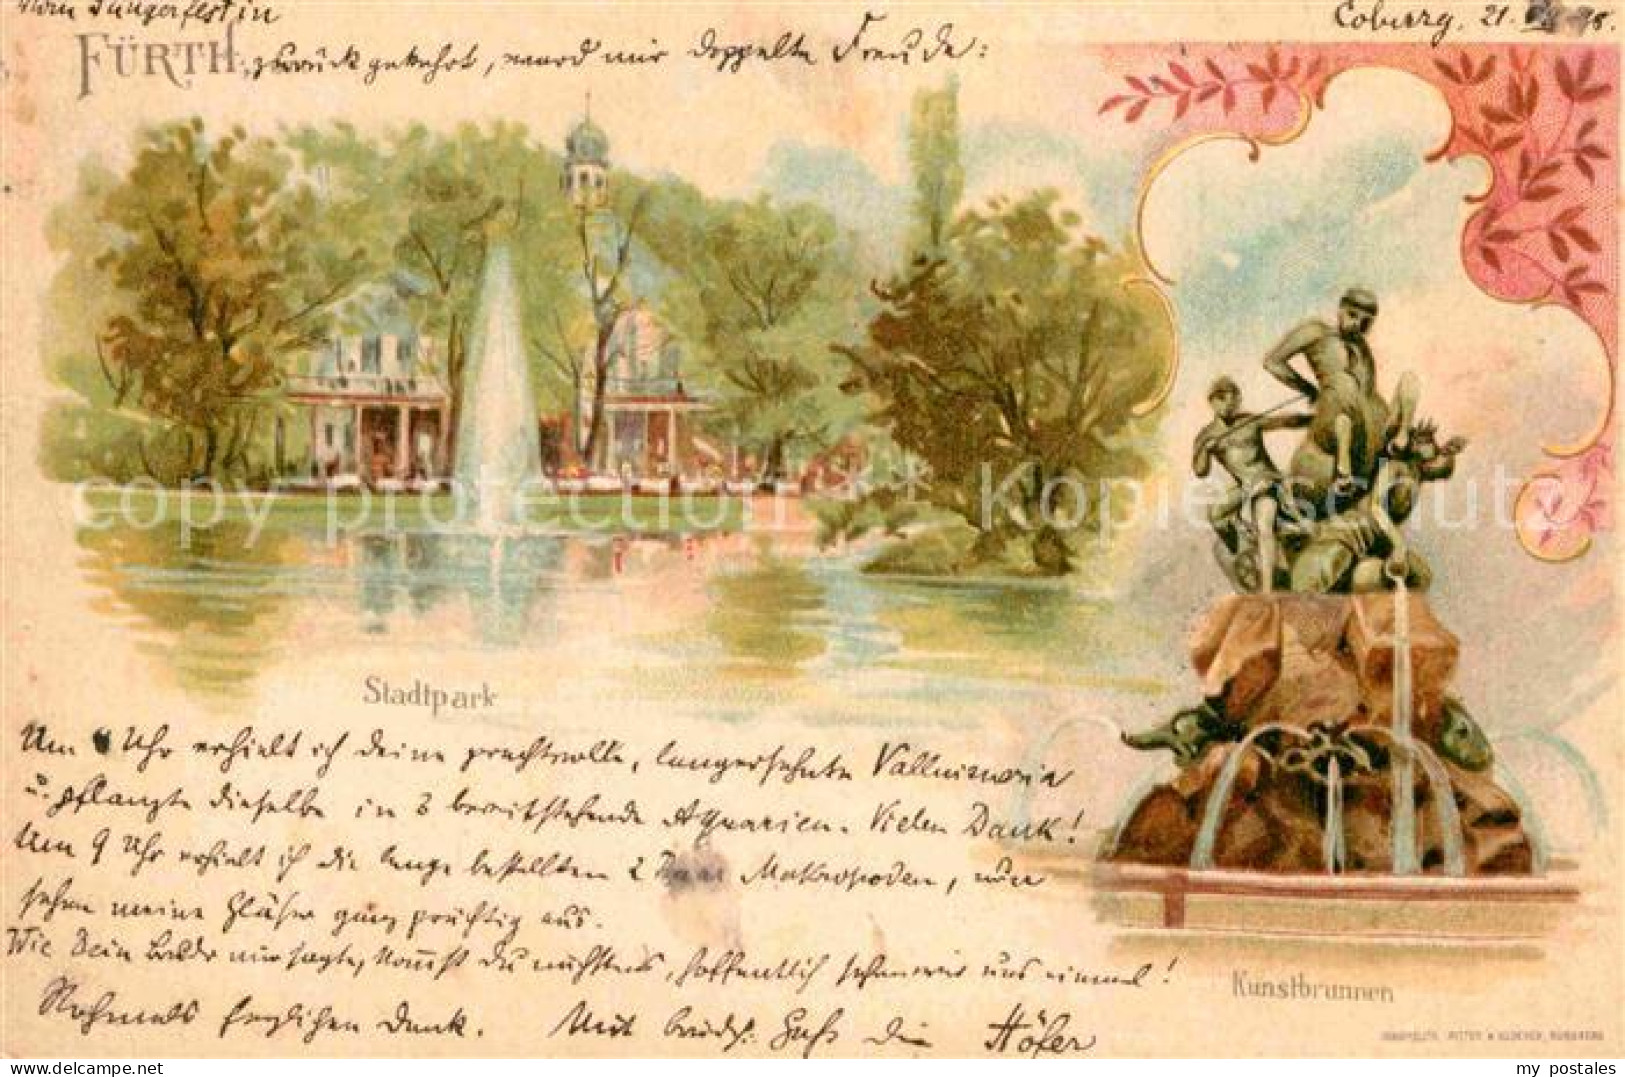 Vom Sängerfest in
Coburg, 21. 98.
FÜRTH zurückgekehrt, ward mir doppelte Freude:
copy protection ** Kopierschutz
Stadtpark
Um Uhr erhielt ich deine prachtvolle, langersehnte Vallisneria
u. pflanzte dieselbe in 3 bereitstehende Aquarien. Vielen Dank!
Um 9 Uhr erhielt ich die lange bestellten 2 Paar Makropoden, nun
sehen meine Gläser ganz prächtig aus.
Wie Dein Bruder mir sagte, kommst Du nächstens, hoffentlich sehen wir uns einmal!
Kunstbrunnen
Nochmals herzlichen Dank. Mit brüdl. Gruß Dein Höfer
NÜRNBERG
my postales